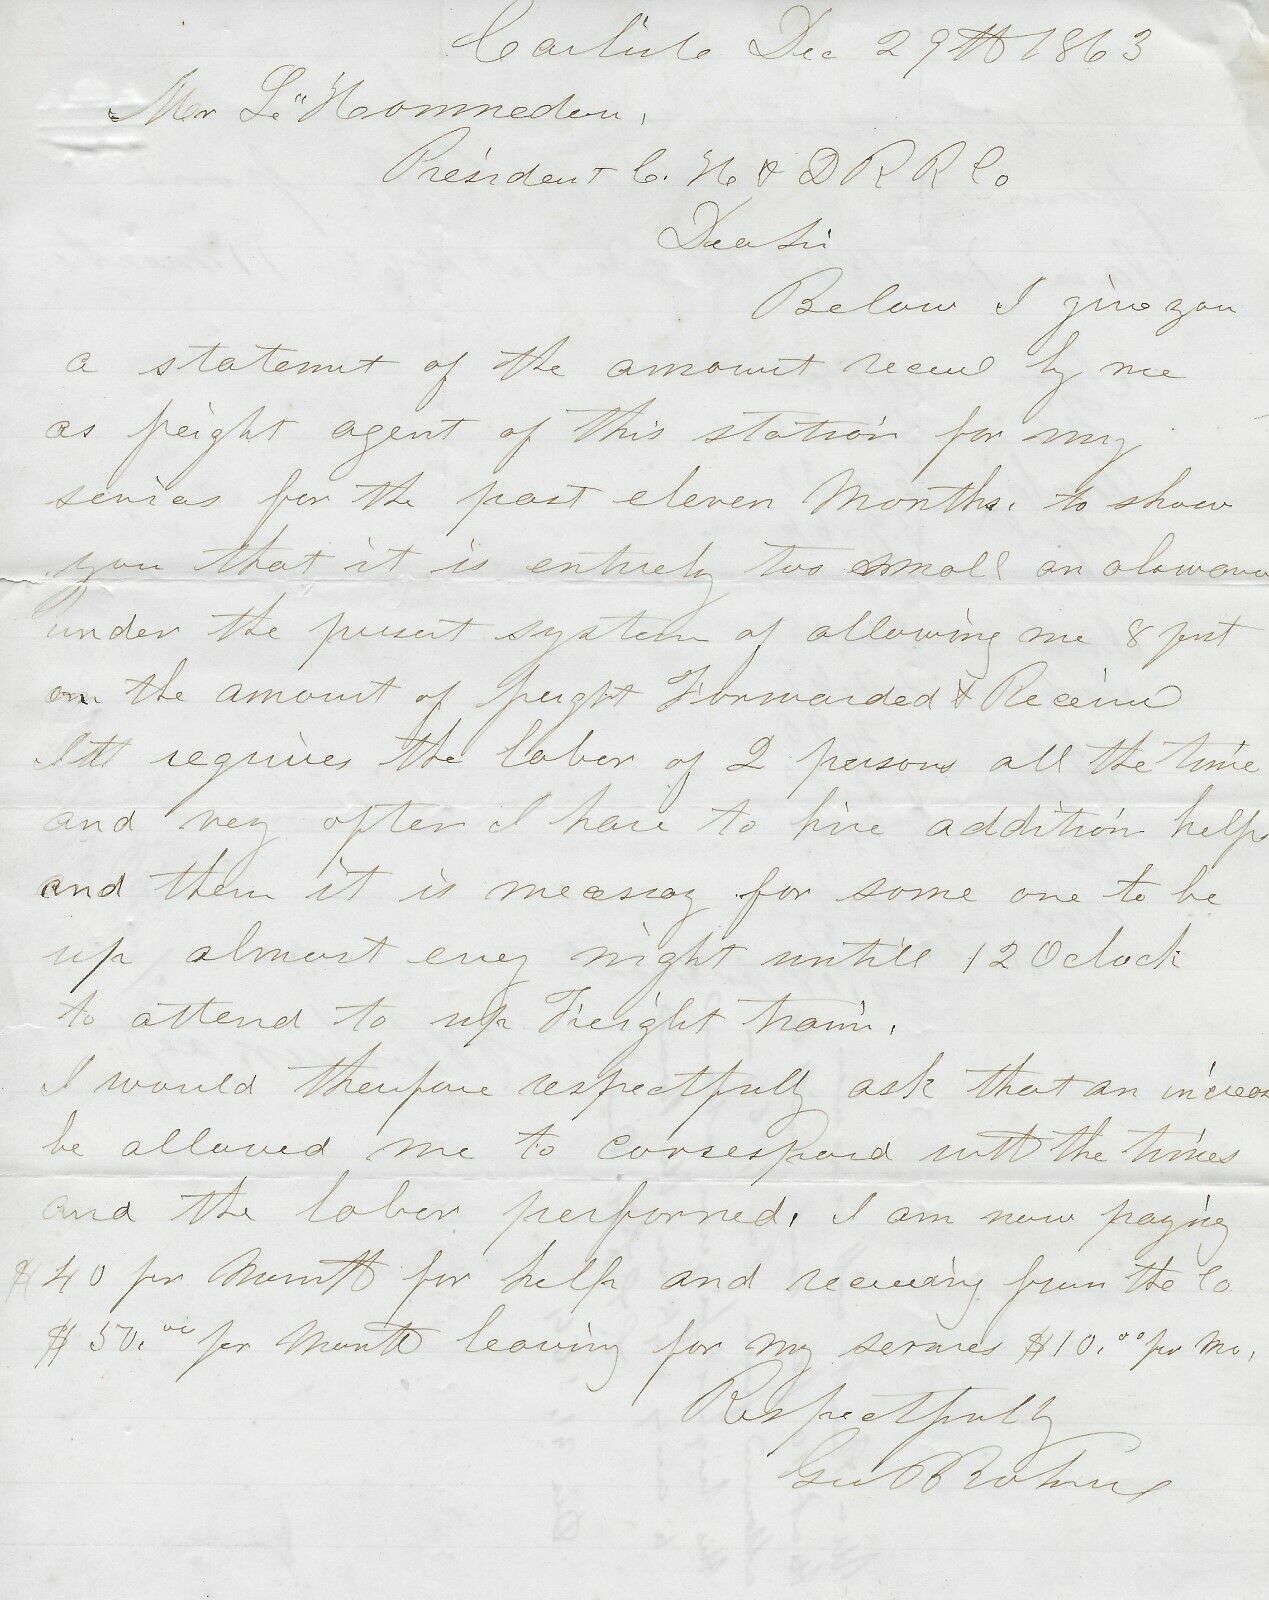 Carlisle Dec 29th 1863
Mr L"Hommedeu,
President C. H & D R R Co
Dear Sir
Below I give you
a statemnt of the amount received by me
as freight agent of this station for my
services for the past eleven Months. to show
you that it is entirely too small an alowance
under the present system of allowing me 8 pct
on the amount of freight Forwarded & Received
It requires the labor of 2 persons all the time
and very often I have to hire addition help
and then it is necessary for some one to be
up almost every night untill 12 Oclock
to attend to up Freight train.
I would therefore respectfully ask that an increase
be allowed me to correspond with the times
and the labor performed. I am now paying
$40 per Month for help and receiving from the Co
$50.00 per Month leaving for my services $10.00 per Mo.
Respectfully
Geo